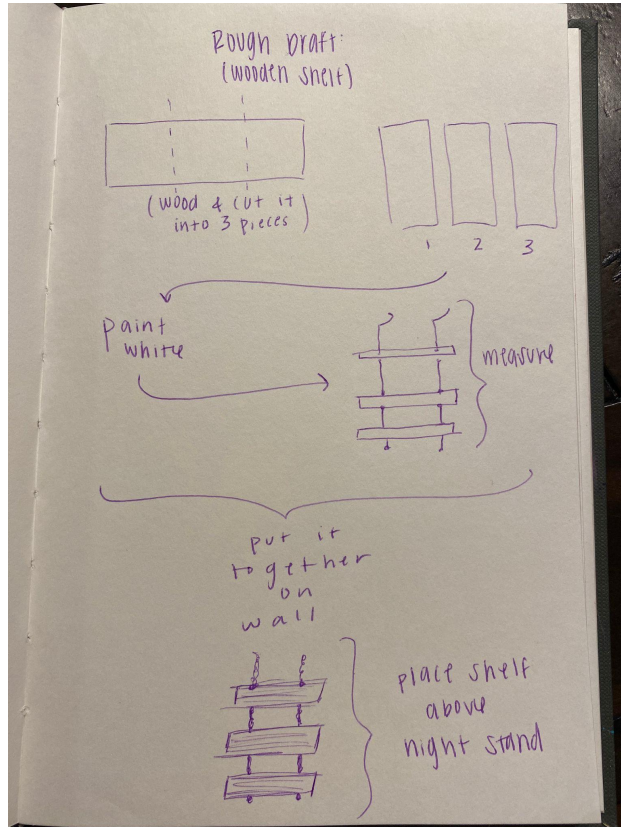 Rough Draft:
(wooden shelf)
(wood & cut it
into 3 pieces)
1 2 3
paint
white
measure
put it
together
on
wall
place shelf
above
night stand